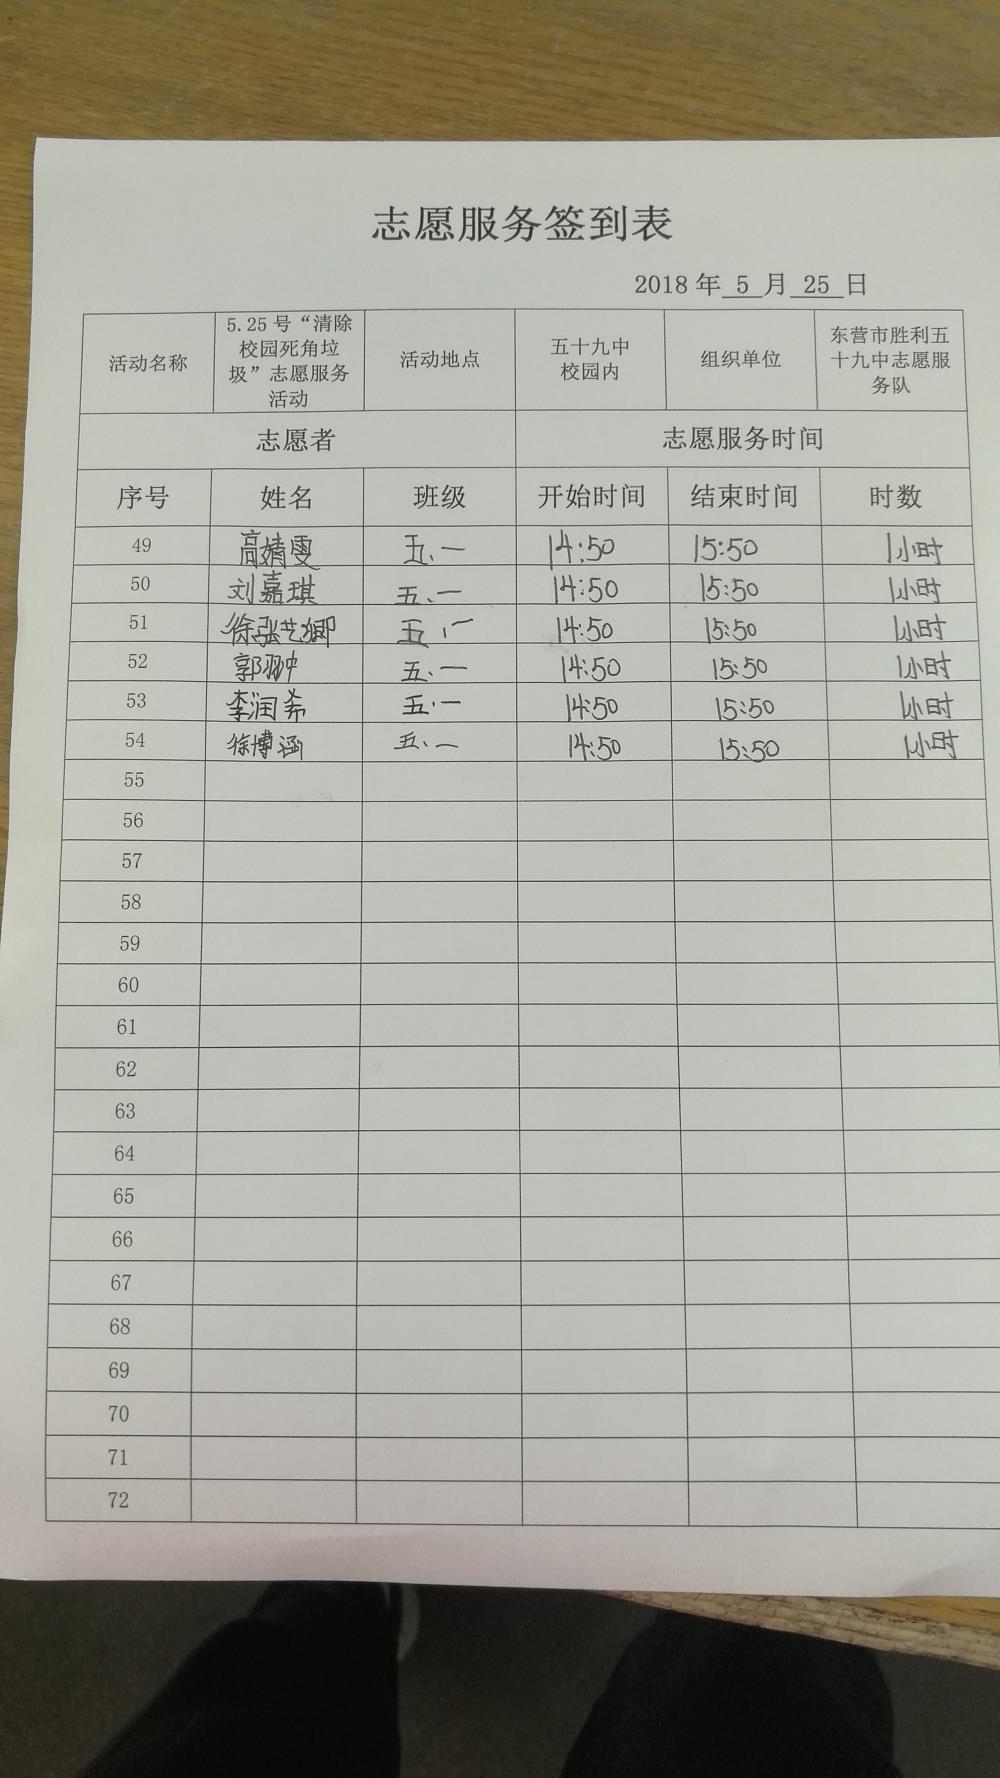 志愿服务签到表
2018 年 5 月 25 日
活动名称 5.25 号“清除校园死角垃圾”志愿服务活动 活动地点 五十九中校园内 组织单位 东营市胜利五十九中志愿服务队
志愿者 志愿服务时间
序号 姓名 班级 开始时间 结束时间 时数
49 高婧雯 五.一 14:50 15:50 1小时
50 刘嘉琪 五.一 14:50 15:50 1小时
51 徐张艺娜 五.一 14:50 15:50 1小时
52 郭翀 五.一 14:50 15:50 1小时
53 李润希 五.一 14:50 15:50 1小时
54 徐博涵 五.一 14:50 15:50 1小时
55
56
57
58
59
60
61
62
63
64
65
66
67
68
69
70
71
72